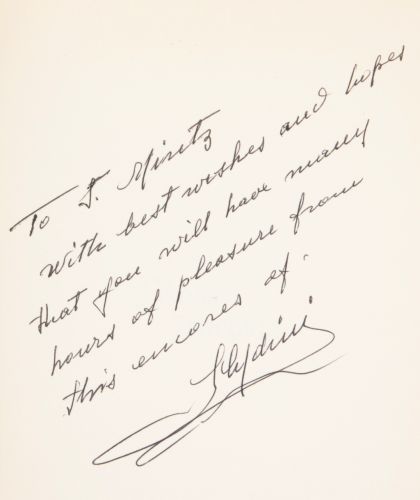 To S. Mintz
With best wishes and hopes
that you will have many
hours of pleasure from
this encores of.
Slydini